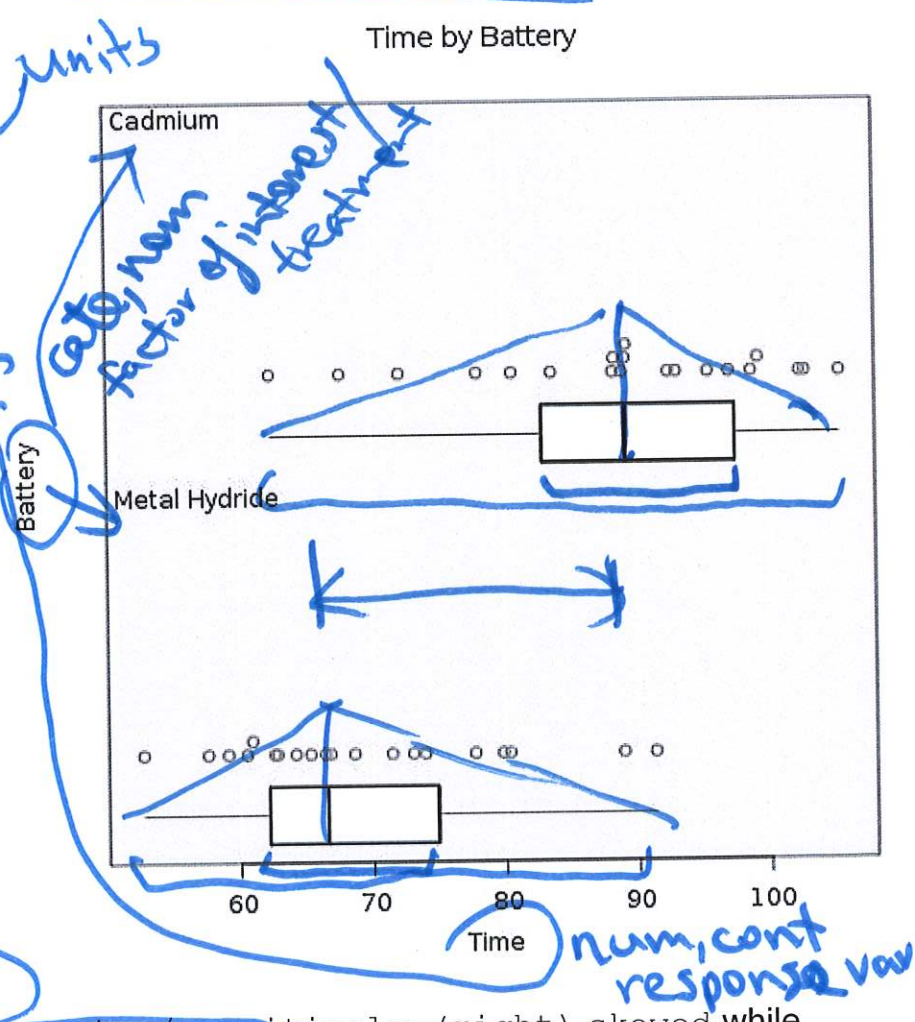 units
Time by Battery
Cadmium
cate, nom
factor of interest
treatment
Battery
Metal Hydride
60 70 80 90 100
Time
num, cont
response var
(right) skewed while